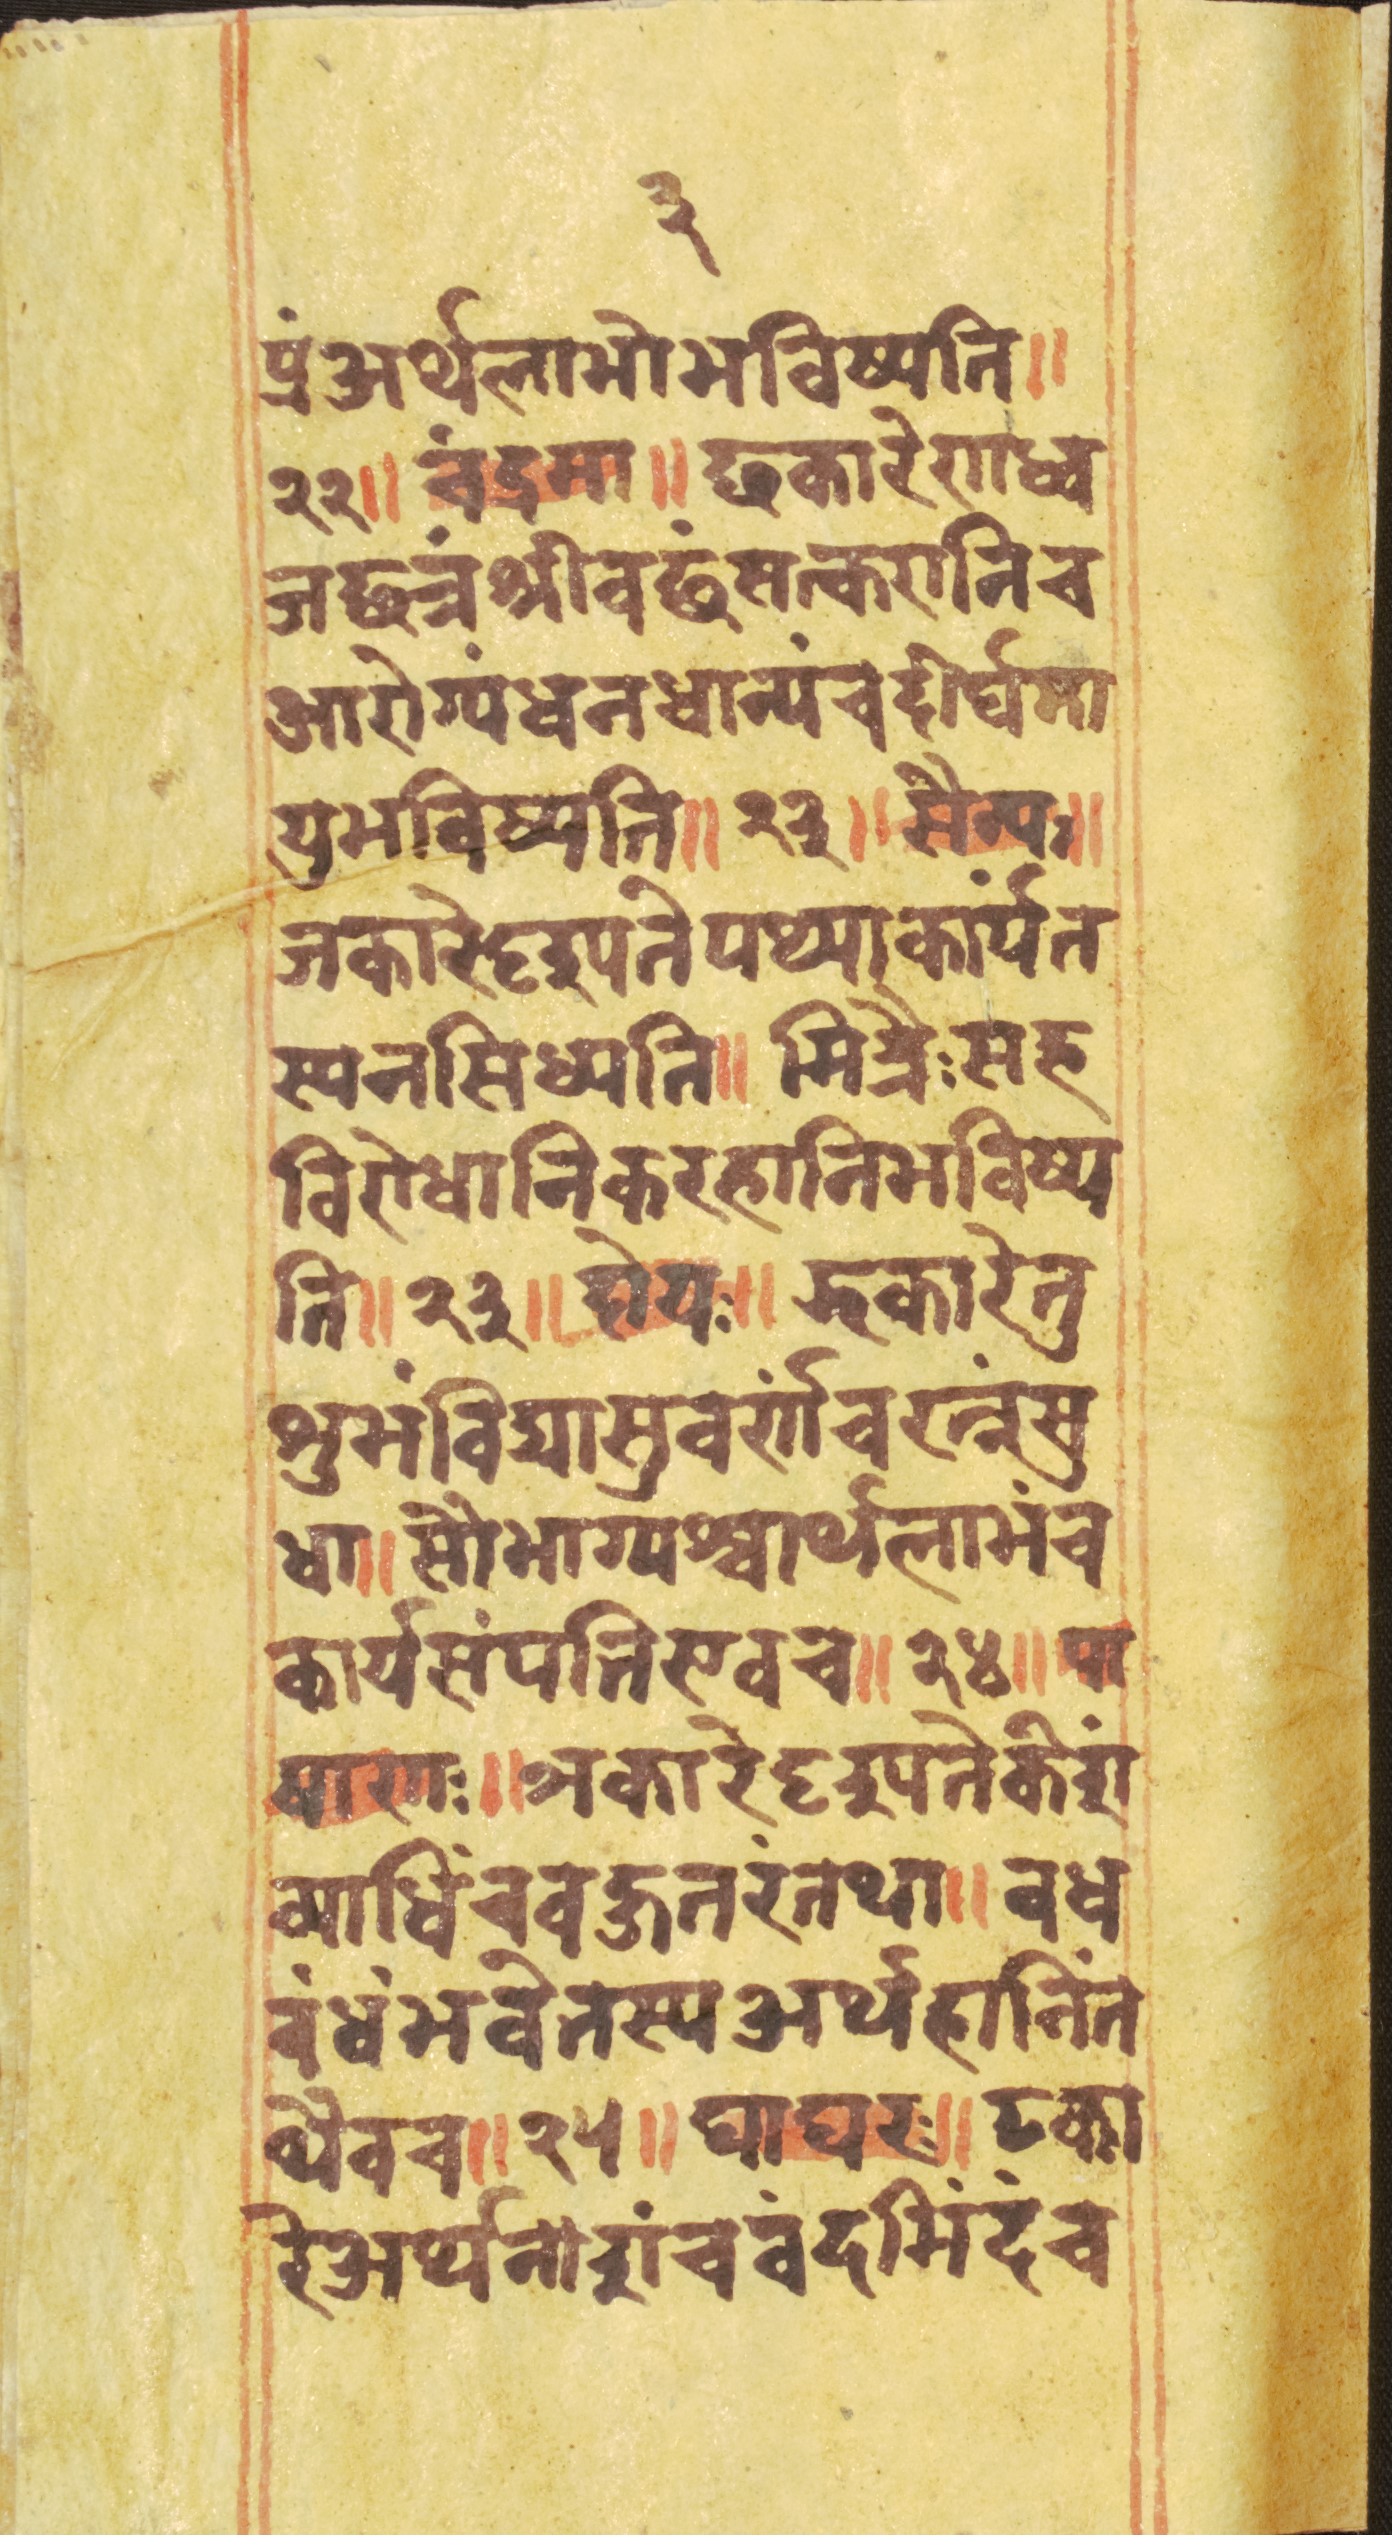 ३
प्रंअर्थलाभोभविष्यति॥
२२॥ चंद्रमा॥ छकारेणाध्व
जछत्रंश्रीवछंसत्करानिच
आरोग्यंधनधान्यंचदीर्घमा
युभविष्यति॥ २३॥ सैन्यः॥
जकारेदृदुपतेपथ्याकार्यंत
स्यनसिध्यति॥ मित्रैःसह
विरोधानिकरहानिभविष्य
ति॥ २३॥ होयः॥ झकारेतु
शुभंविद्यासुवर्णंचरत्नंसु
धा॥ सौभाग्यश्चार्थलाभंच
कार्यसंपतिरुवच॥ २४॥ पा
षाणः॥ ञकारेदृदुपतेकेदुां
व्याधिंचवहुतरंतथा॥ वध
वंधंभवेतस्यअर्थहानिंत
थैवच॥ २५॥ घाघरः॥ टका
रेअर्थनादुांचवंदमिंदंच